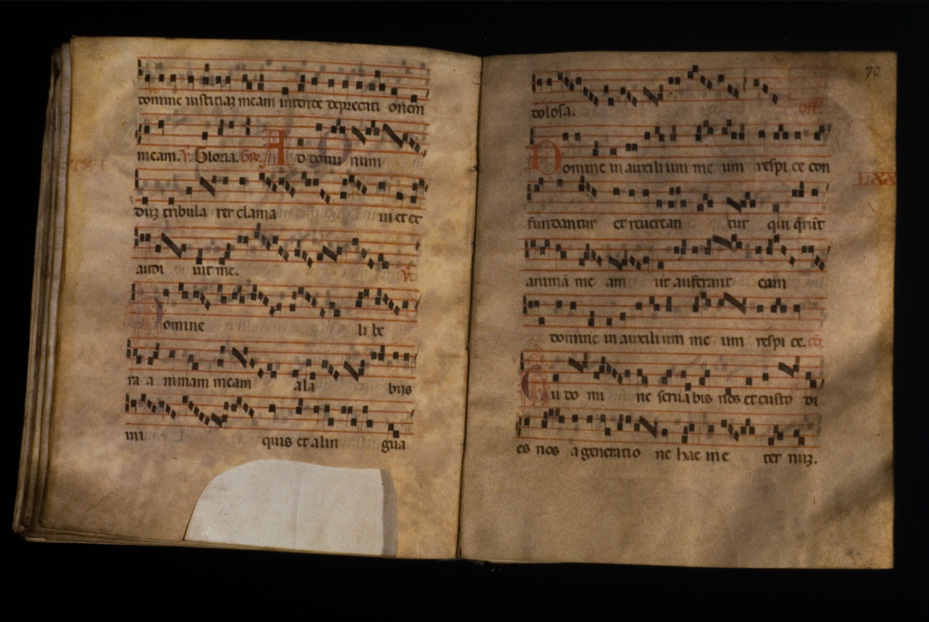 domine iusticiam meam intende deprecationem
meam. V. Gloria. Gr. Ad dominum
dum tribularer clamavi et ex
audi vit me. V.
Domine libe
ra animam meam a labiis
ini quis et a lin gua
70
dolosa. off.
Domine in auxilium me um respi ce con
LXX
fundantur et reverean tur qui querunt
animam me am ut auferant eam
domine in auxilium me um respi ce. co.
Tu do mi ne servabis nos et custo di
es nos a generatio ne hac in e ter num.